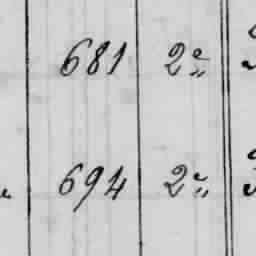 681 2º„
694 2º„